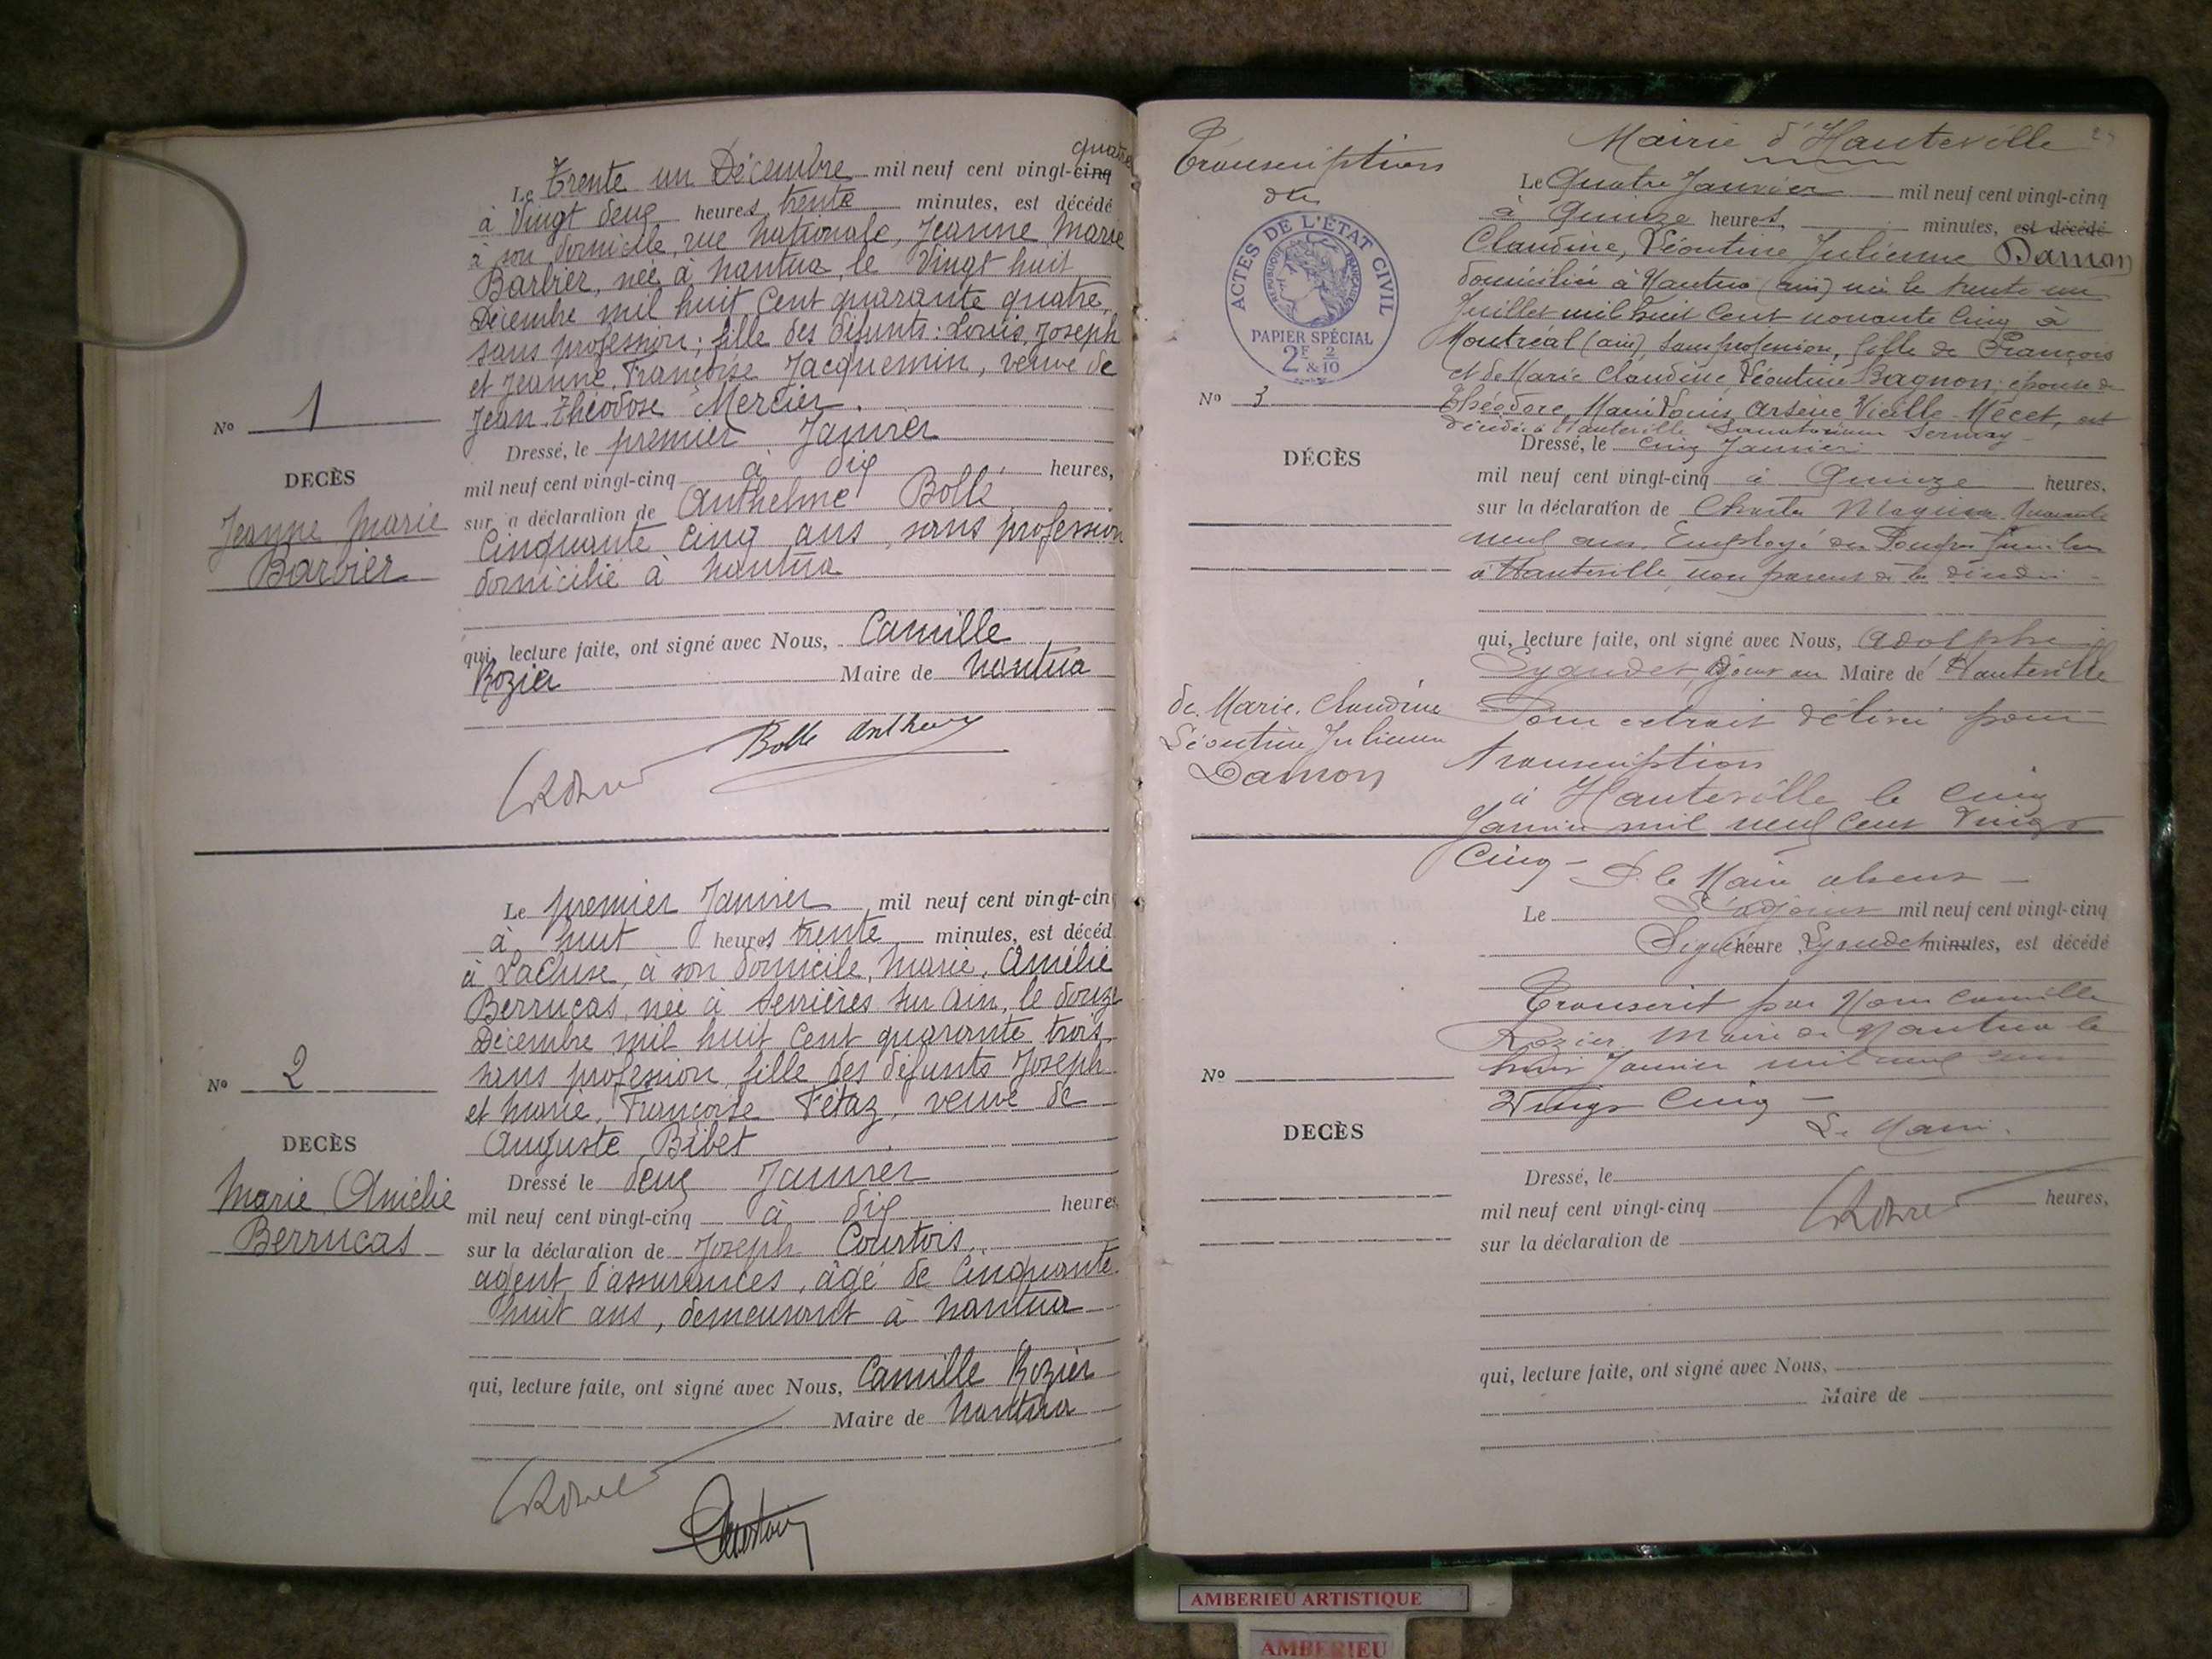 quatre
Le Trente un Décembre mil neuf cent vingt-cinq
à Vingt deux heures trente minutes, est décédé
à son domicile, rue Nationale, Jeanne Marie
Barbier, née à Nantua, le Vingt huit
Décembre mil huit Cent quarante quatre,
sans profession; fille des défunts: Louis, Joseph
et Jeanne, Françoise Jacquemin, veuve de
Jean Théodose Mercier.
Nº 1
DECÈS
Jeanne Marie
Barbier
Dressé, le premier Janvier
mil neuf cent vingt-cinq à dix heures,
sur la déclaration de Anthelme Bolle
Cinquante cinq ans, sans profession
domicilié à Nantua
qui, lecture faite, ont signé avec Nous, Camille
Rozier Maire de Nantua
Bolle Anthelme
Le premier Janvier mil neuf cent vingt-cinq
à huit heures trente minutes, est décédé
à LaCluse, à son domicile, Marie, Amélie
Berrucas, née à Serrières sur Ain, le douze
Décembre mil huit Cent quarante trois,
sans profession, fille des défunts Joseph
et Marie, Françoise Fétaz, veuve de
Auguste Bibet
Nº 2
DECÈS
Marie Amélie
Berrucas
Dressé le deux Janvier
mil neuf cent vingt-cinq à dix heures
sur la déclaration de Joseph Courtois,
agent d'assurances, âgé de Cinquante
huit ans, demeurant à Nantua
qui, lecture faite, ont signé avec Nous, Camille Rozier
Maire de Nantua
Transcription
de
ACTES DE L'ÉTAT CIVIL
RÉPUBLIQUE FRANÇAISE
PAPIER SPÉCIAL
2F & 2/10
Nº 3
DÉCÈS
de Marie, Claudine
Léontine Julienne
Damon
Mairie d'Hauteville
Le Quatre Janvier mil neuf cent vingt-cinq
à Quinze heures, minutes, est décédé
Claudine, Léontine Julienne Damon
domiciliée à Nantua (ain) née le trente un
Juillet mil huit Cent nonante Cinq à
Montréal (ain), sans profession, fille de François
et de Marie Claudine Léontine Bagnon, épouse de
Théodore, Marie Louis, Arsène Vieille-Mecet, est
décédée à Hauteville Sanatorium
Dressé, le Cinq Janvier
mil neuf cent vingt-cinq à Quinze heures,
sur la déclaration de Charles Quarante
neuf ans, Employé des Pompes funèbres
à Hauteville, non parent de la décédée
qui, lecture faite, ont signé avec Nous, Adolphe
Adjoint au Maire de Hauteville
Pour extrait délivré pour
transcription
à Hauteville le Cinq
Janvier mil neuf Cent Vingt
Cinq - P. le Maire absent -
L'adjoint
Le mil neuf cent vingt-cinq
Signé heure minutes, est décédé
Transcrit par Nous Camille
Rozier, Maire de Nantua le
huit Janvier mil neuf cent
Vingt Cinq -
Le Maire.
Nº
DECÈS
Dressé, le
mil neuf cent vingt-cinq heures,
sur la déclaration de
qui, lecture faite, ont signé avec Nous,
Maire de
AMBERIEU ARTISTIQUE
AMBERIEU